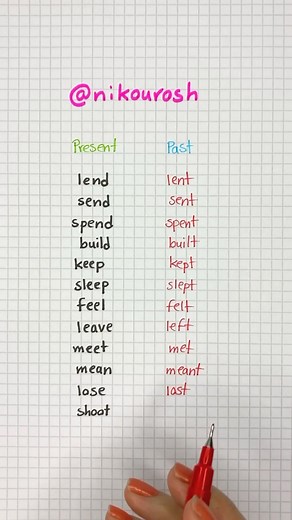 @nikourosh
Present Past
lend lent
send sent
spend spent
build built
keep kept
sleep slept
feel felt
leave left
meet met
mean meant
lose lost
shoot